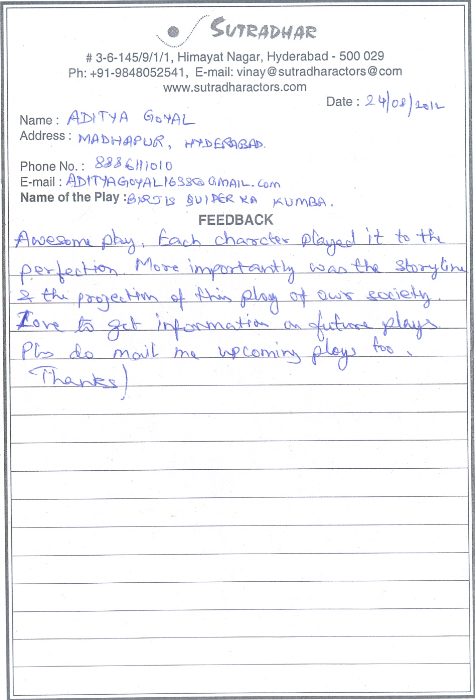 SUTRADHAR
# 3-6-145/9/1/1, Himayat Nagar, Hyderabad - 500 029
Ph: +91-9848052541, E-mail: vinay@sutradharactors@com
www.sutradharactors.com
Date : 24/08/2012
Name : ADITYA GOYAL
Address : MADHAPUR, HYDERABAD.
Phone No. : 8886111010
E-mail : ADITYAGOYAL1633@GMAIL.com
Name of the Play : BIRJIS QUIDER KA KUMBA.
FEEDBACK
Awesome play. Each character played it to the
perfection. More importantly was the storyline
& the projection of this play of our society.
Love to get information on future plays
Pls do mail me upcoming plays too.
Thanks)